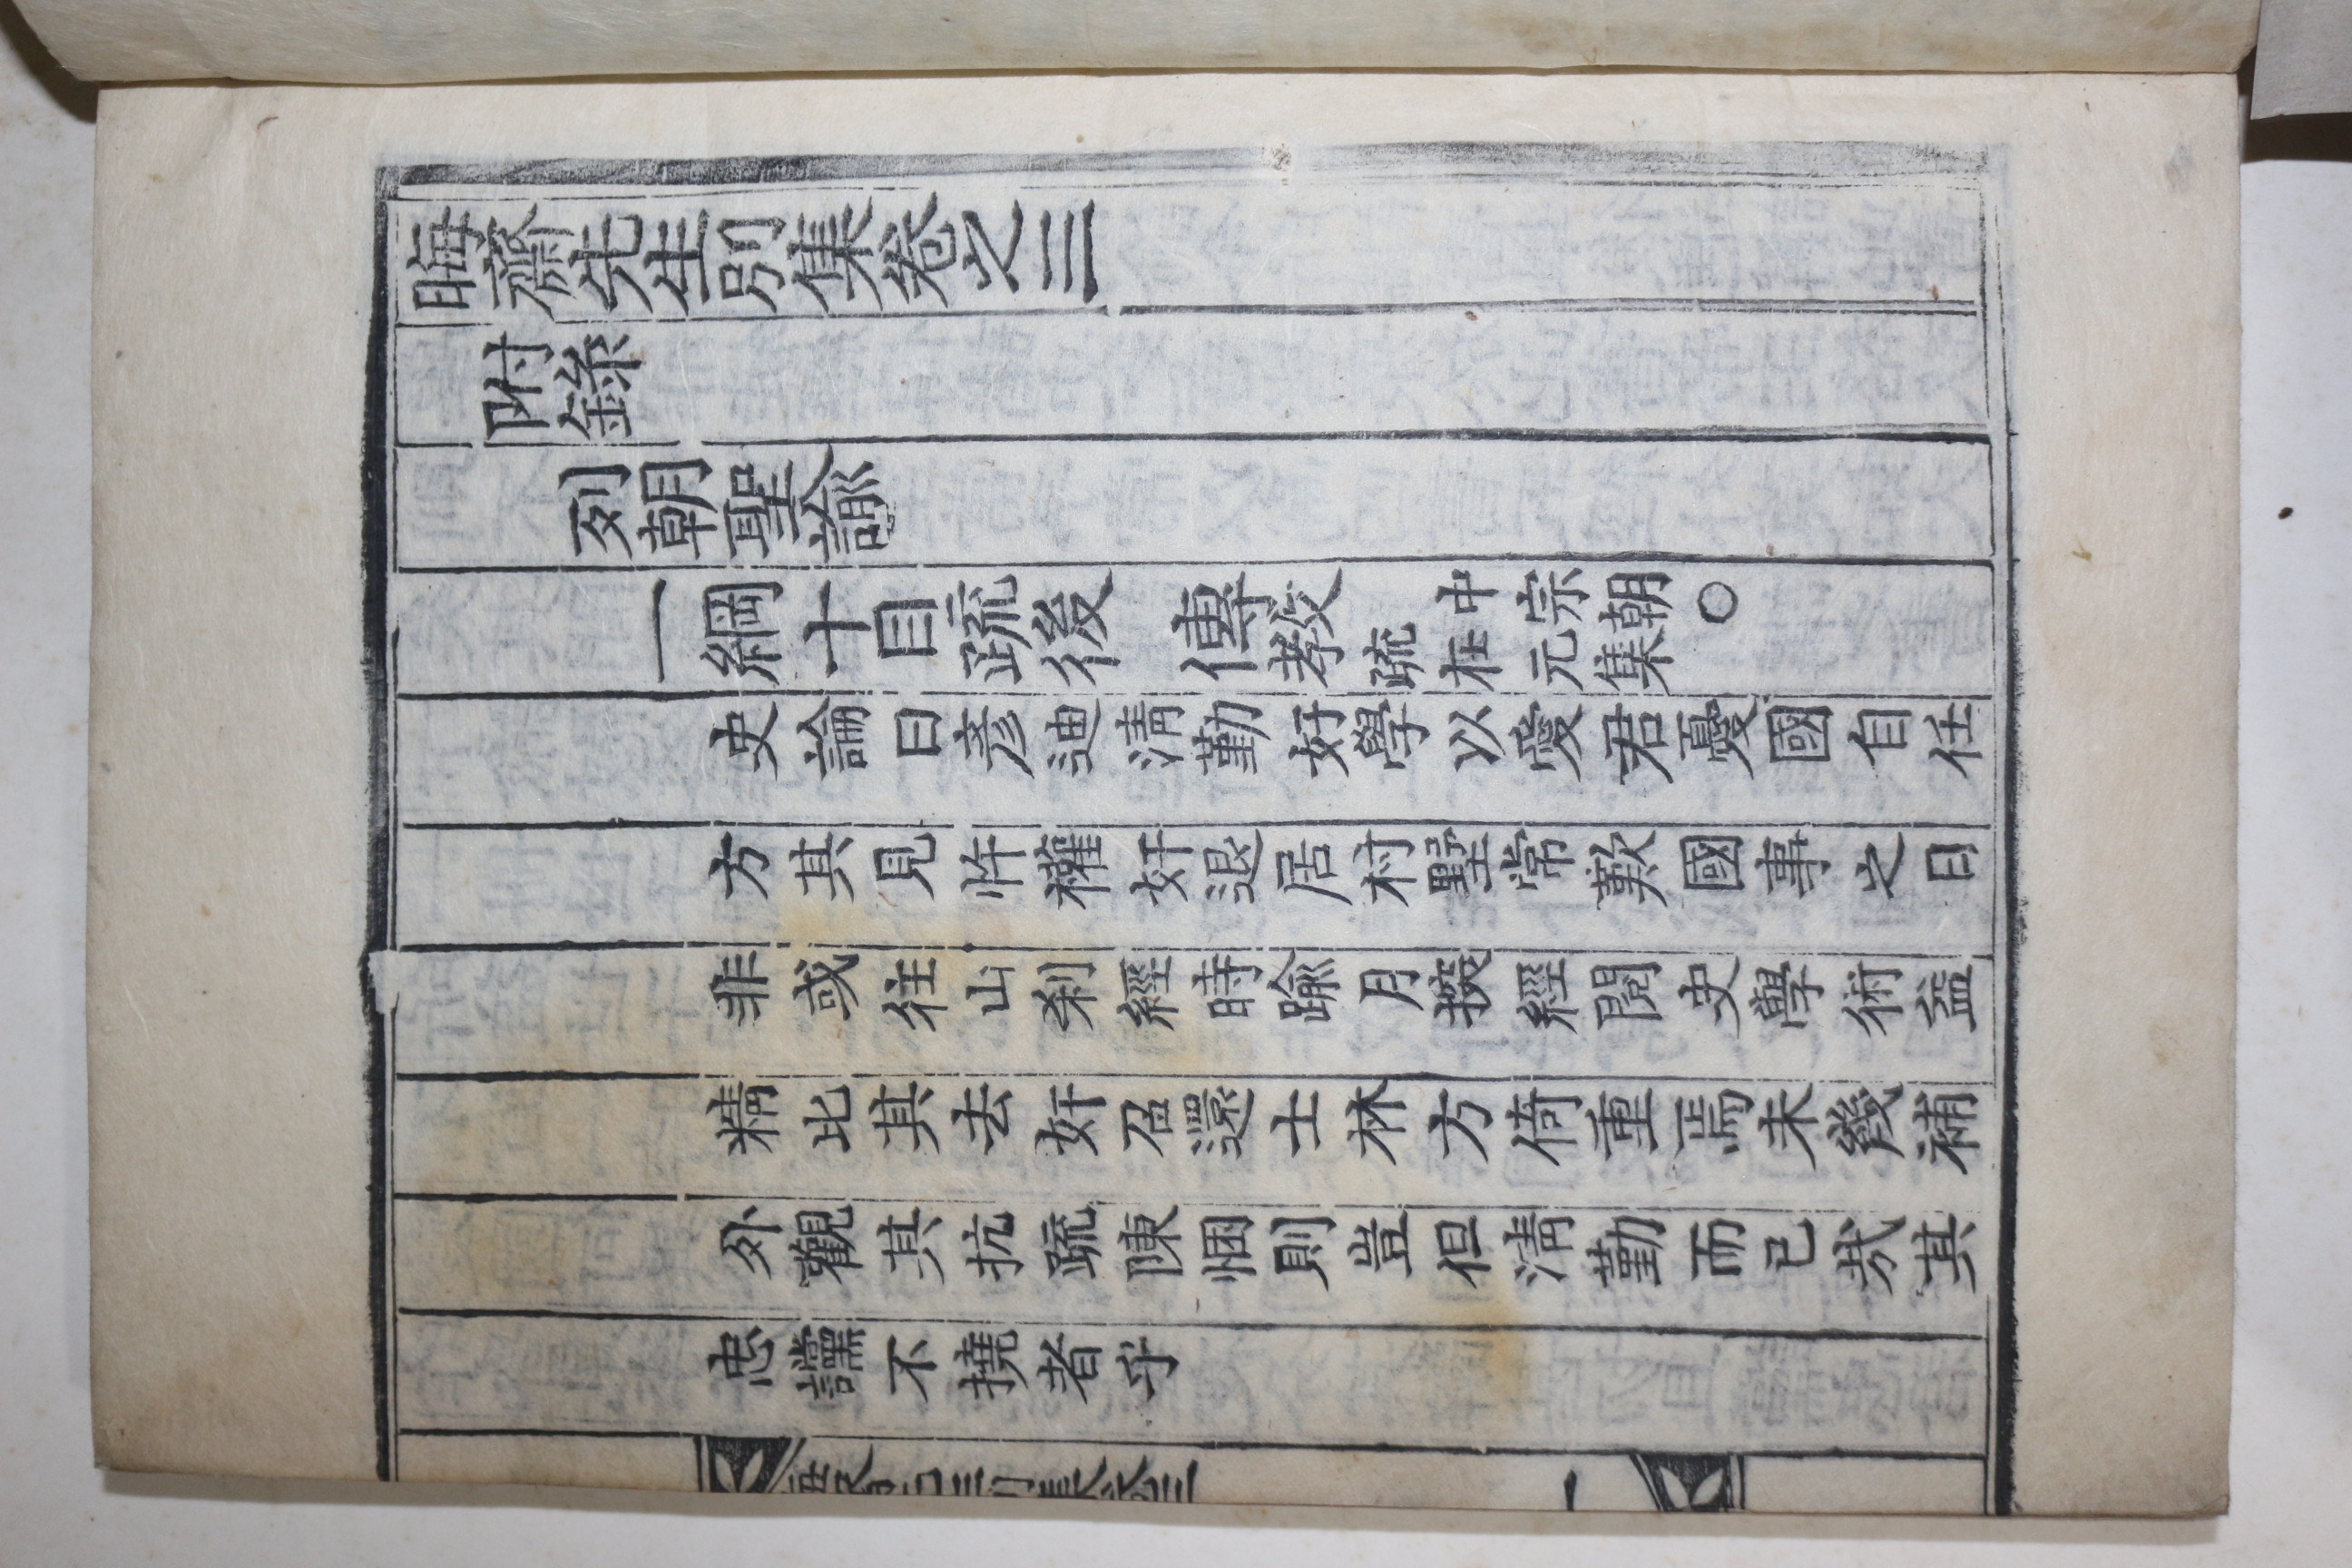 晦齋先生別集卷之三
附錄
列朝聖諭
一綱十目疏後 傳教 中宗朝 疏在元集 ○
史論曰彥迪淸勤好學以愛君憂國自任
方其見忤權奸退居村墅常歎國事之日
非或往山刹經時踰月探經閱史學術益
精比其去奸召還士林方倚重焉未幾補
外觀其抗疏陳悃則豈但淸勤而已哉其
忠讜不撓者乎